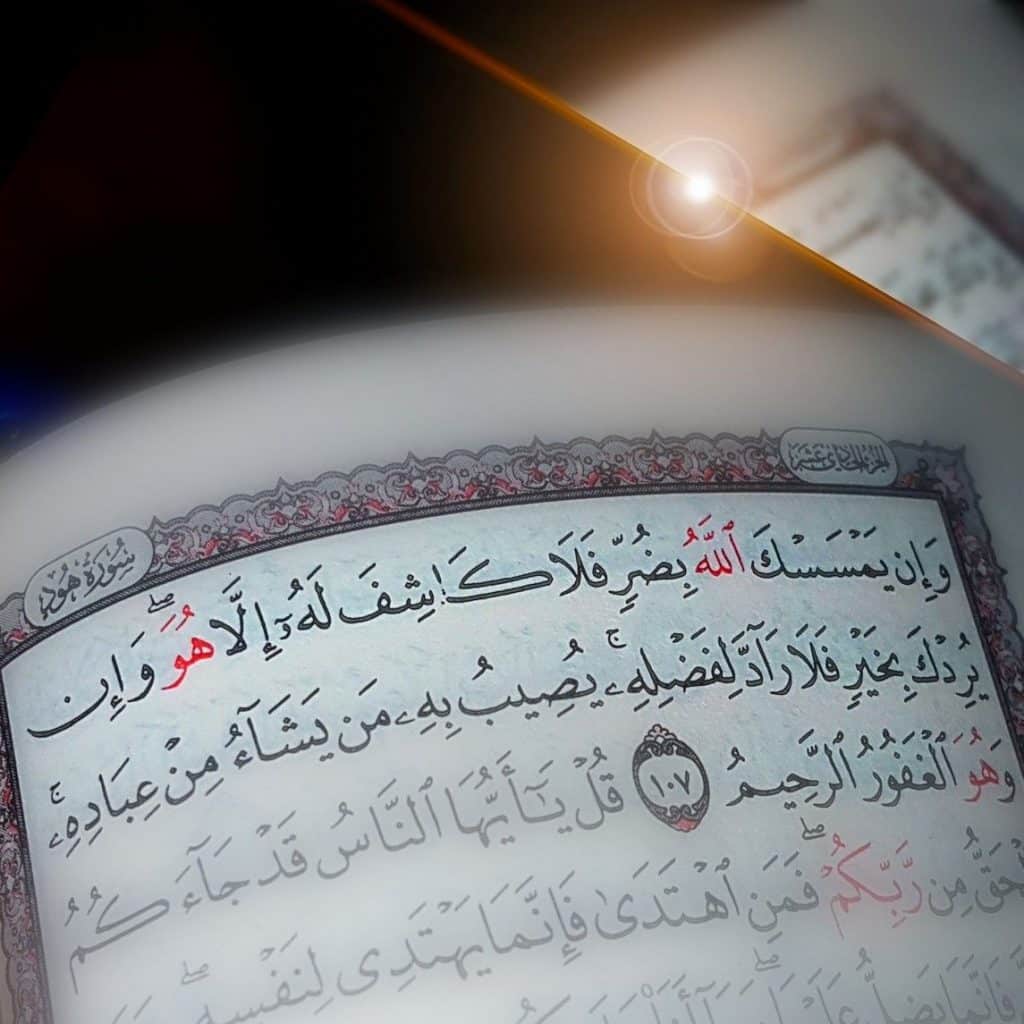 الجزء الحادي عشر
سُورَةُ هُودٍ
وَإِن يَمْسَسْكَ ٱللَّهُ بِضُرٍّ فَلَا كَاشِفَ لَهُۥٓ إِلَّا هُوَ ۖ وَإِن
يُرِدْكَ بِخَيْرٍ فَلَا رَآدَّ لِفَضْلِهِۦ ۚ يُصِيبُ بِهِۦ مَن يَشَآءُ مِنْ عِبَادِهِۦ ۚ
وَهُوَ ٱلْغَفُورُ ٱلرَّحِيمُ ١٠٧ قُلْ يَٰٓأَيُّهَا ٱلنَّاسُ قَدْ جَآءَكُمُ
ٱلْحَقُّ مِن رَّبِّكُمْ ۖ فَمَنِ ٱهْتَدَىٰ فَإِنَّمَا يَهْتَدِى لِنَفْسِهِۦ ۖ
فَإِنَّمَا يَضِلُّ عَلَيْهَا ۖ